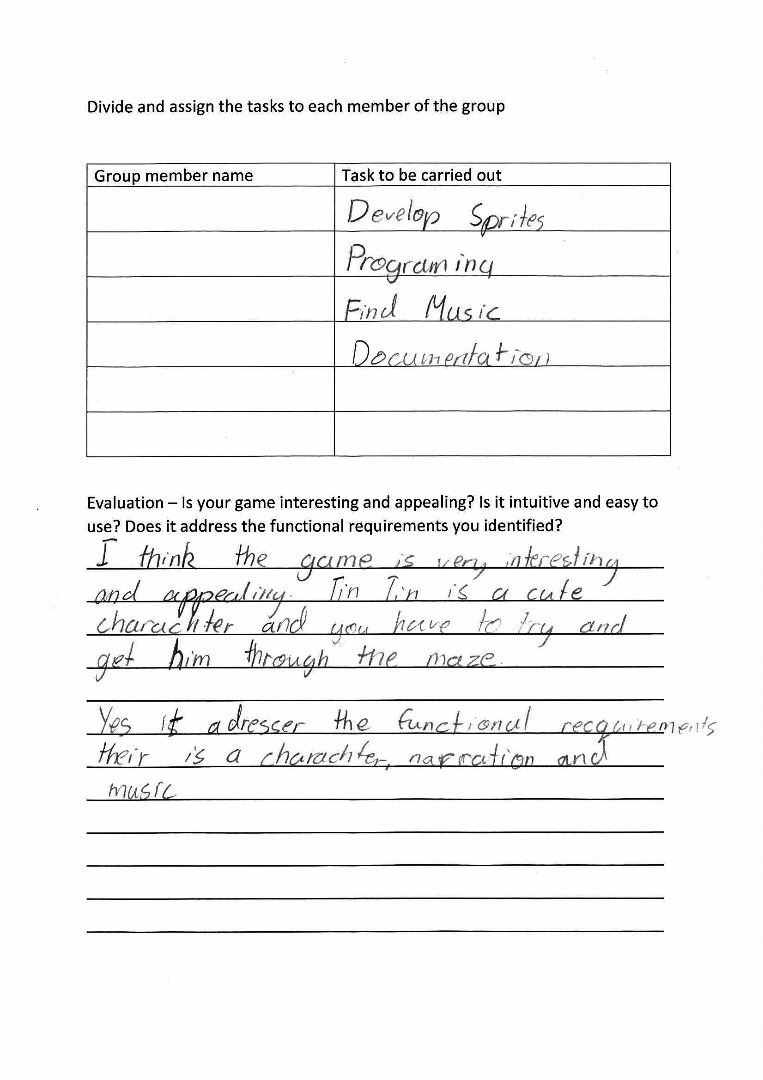 Divide and assign the tasks to each member of the group
Group member name Task to be carried out
Develop Sprites
Programing
Find Music
Documentation
Evaluation – Is your game interesting and appealing? Is it intuitive and easy to
use? Does it address the functional requirements you identified?
I think the game is very interesting
and appealing. Tin Tin is a cute
charachter and you have to try and
get him through the maze.
Yes it adresser the functional recquirements
their is a charachter, narration and
music.